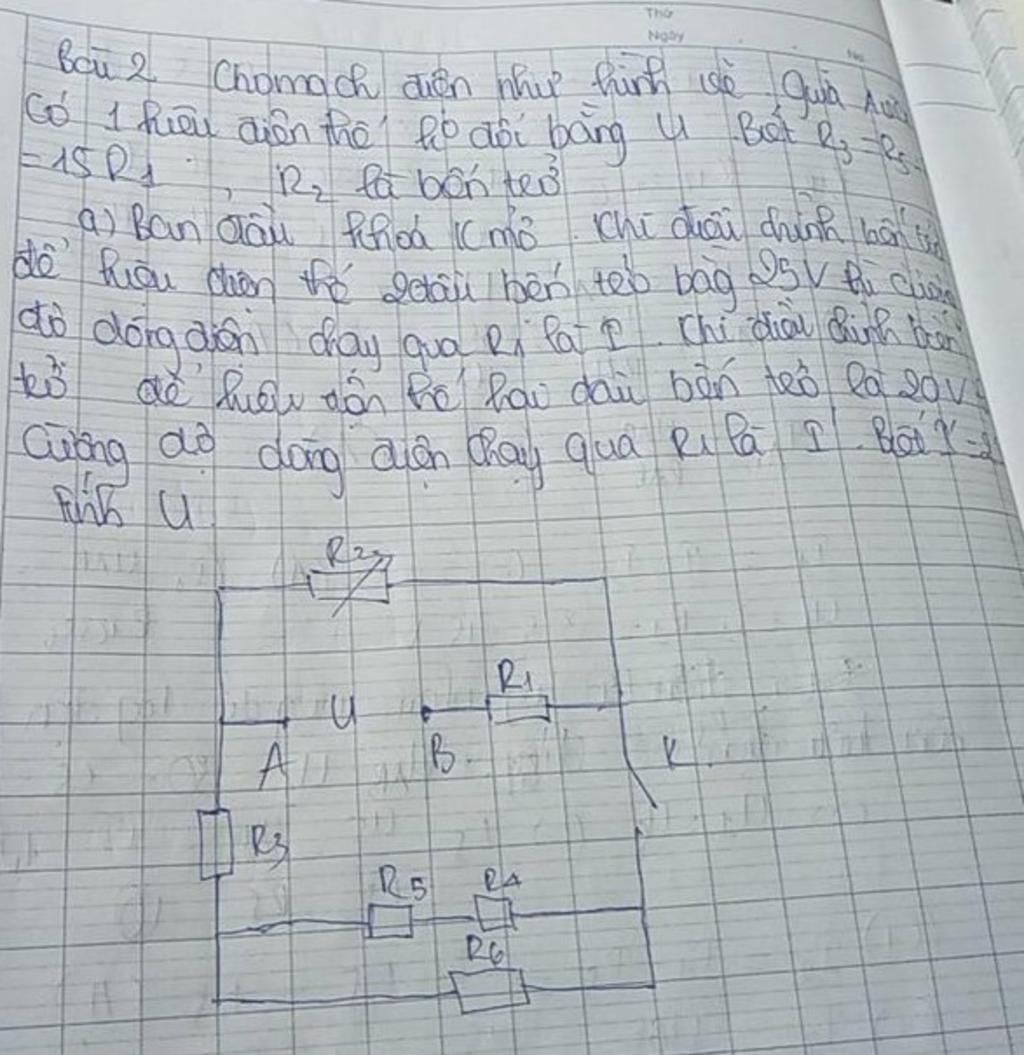 Thứ
Ngày
No.
Bài 2 Cho mạch điện như hình vẽ. Giữa A và
Có 1 hiệu điện thế ko đổi bằng U Biết R3 = R5
= 15 R1 , R2 là biến trở
a) Ban đầu khoá K mở. Khi điều chỉnh biến trở
để hiệu điện thế 2 đầu biến trở bằg 25V thì cường
độ dòng điện chạy qua R1 là I. Khi điều chỉnh biến
trở để hiệu điện thế hai đầu biến trở là 20V
Cường độ dòng điện chạy qua R1 là I'. Biết I' = 2
tính U
R2
R1
U
A
B
K
R3
R5 R4
R6